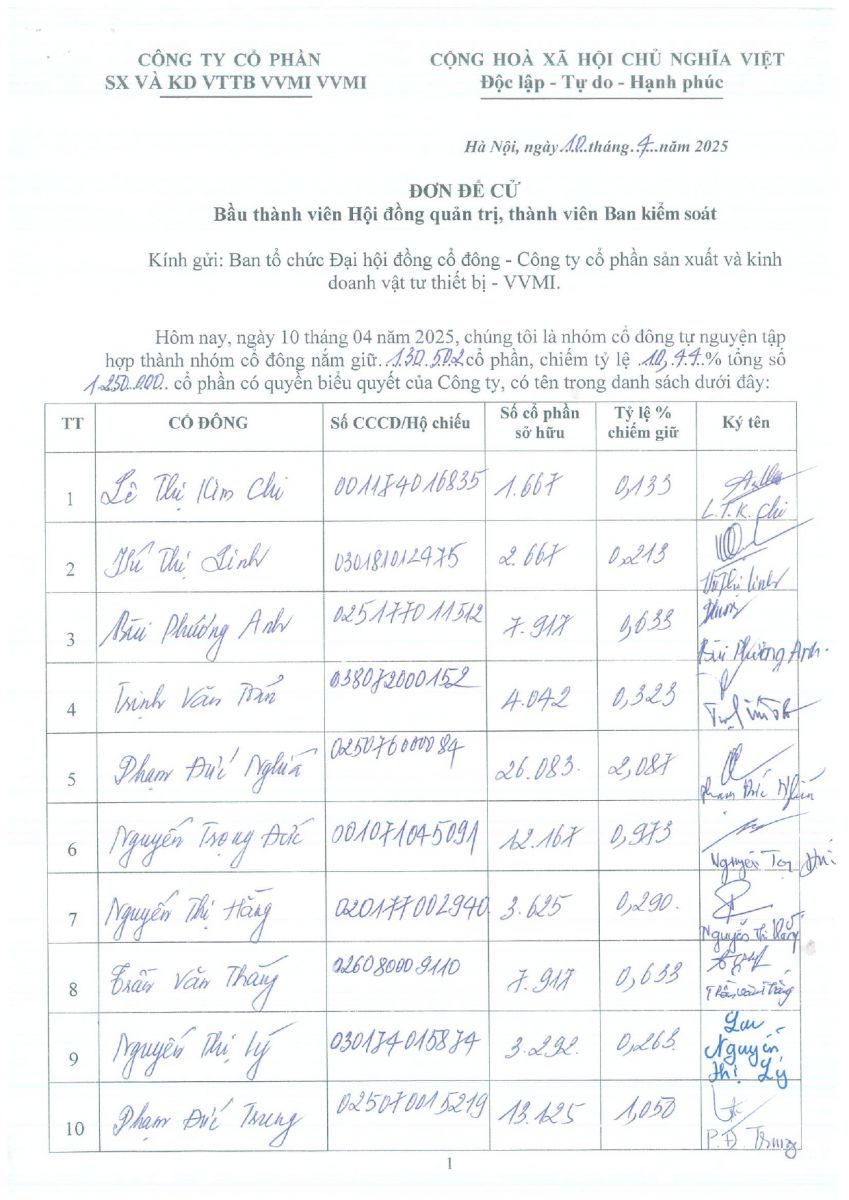 CÔNG TY CỔ PHẦN
SX VÀ KD VTTB VVMI VVMI
CỘNG HOÀ XÃ HỘI CHỦ NGHĨA VIỆT
Độc lập - Tự do - Hạnh phúc
Hà Nội, ngày 10 tháng 4 năm 2025
ĐƠN ĐỀ CỬ
Bầu thành viên Hội đồng quản trị, thành viên Ban kiểm soát
Kính gửi: Ban tổ chức Đại hội đồng cổ đông - Công ty cổ phần sản xuất và kinh
doanh vật tư thiết bị - VVMI.
Hôm nay, ngày 10 tháng 04 năm 2025, chúng tôi là nhóm cổ đông tự nguyện tập
hợp thành nhóm cổ đông nắm giữ 130.502 cổ phần, chiếm tỷ lệ 10,44 % tổng số
1.250.000 cổ phần có quyền biểu quyết của Công ty, có tên trong danh sách dưới đây:
TT CỔ ĐÔNG Số CCCD/Hộ chiếu Số cổ phần sở hữu Tỷ lệ % chiếm giữ Ký tên
1 Lê Thị Kim Chi 001174016835 1.667 0,133 L.T.K. Chi
2 Thị Linh 030181012475 2.667 0,213 Thị Linh
3 Bùi Phương Anh 025177011512 7.917 0,633 Bùi Phương Anh
4 Trịnh Văn 038072000152 4.042 0,323
5 Phạm Đức Nghĩa 025076000084 26.083 2,087 Phạm Đức Nghĩa
6 Nguyễn Trọng Đức 001071045091 12.167 0,973 Nguyễn
7 Nguyễn Thị Hằng 020177002940 3.625 0,290 Nguyễn Thị Hằng
8 Trần Văn Thắng 026080009110 7.917 0,633 Trần Văn Thắng
9 Nguyễn Thị Lý 030174015874 3.292 0,263 Nguyễn Thị Lý
10 Phạm Đức Trung 025070015219 13.125 1,050 P.Đ. Trung
1